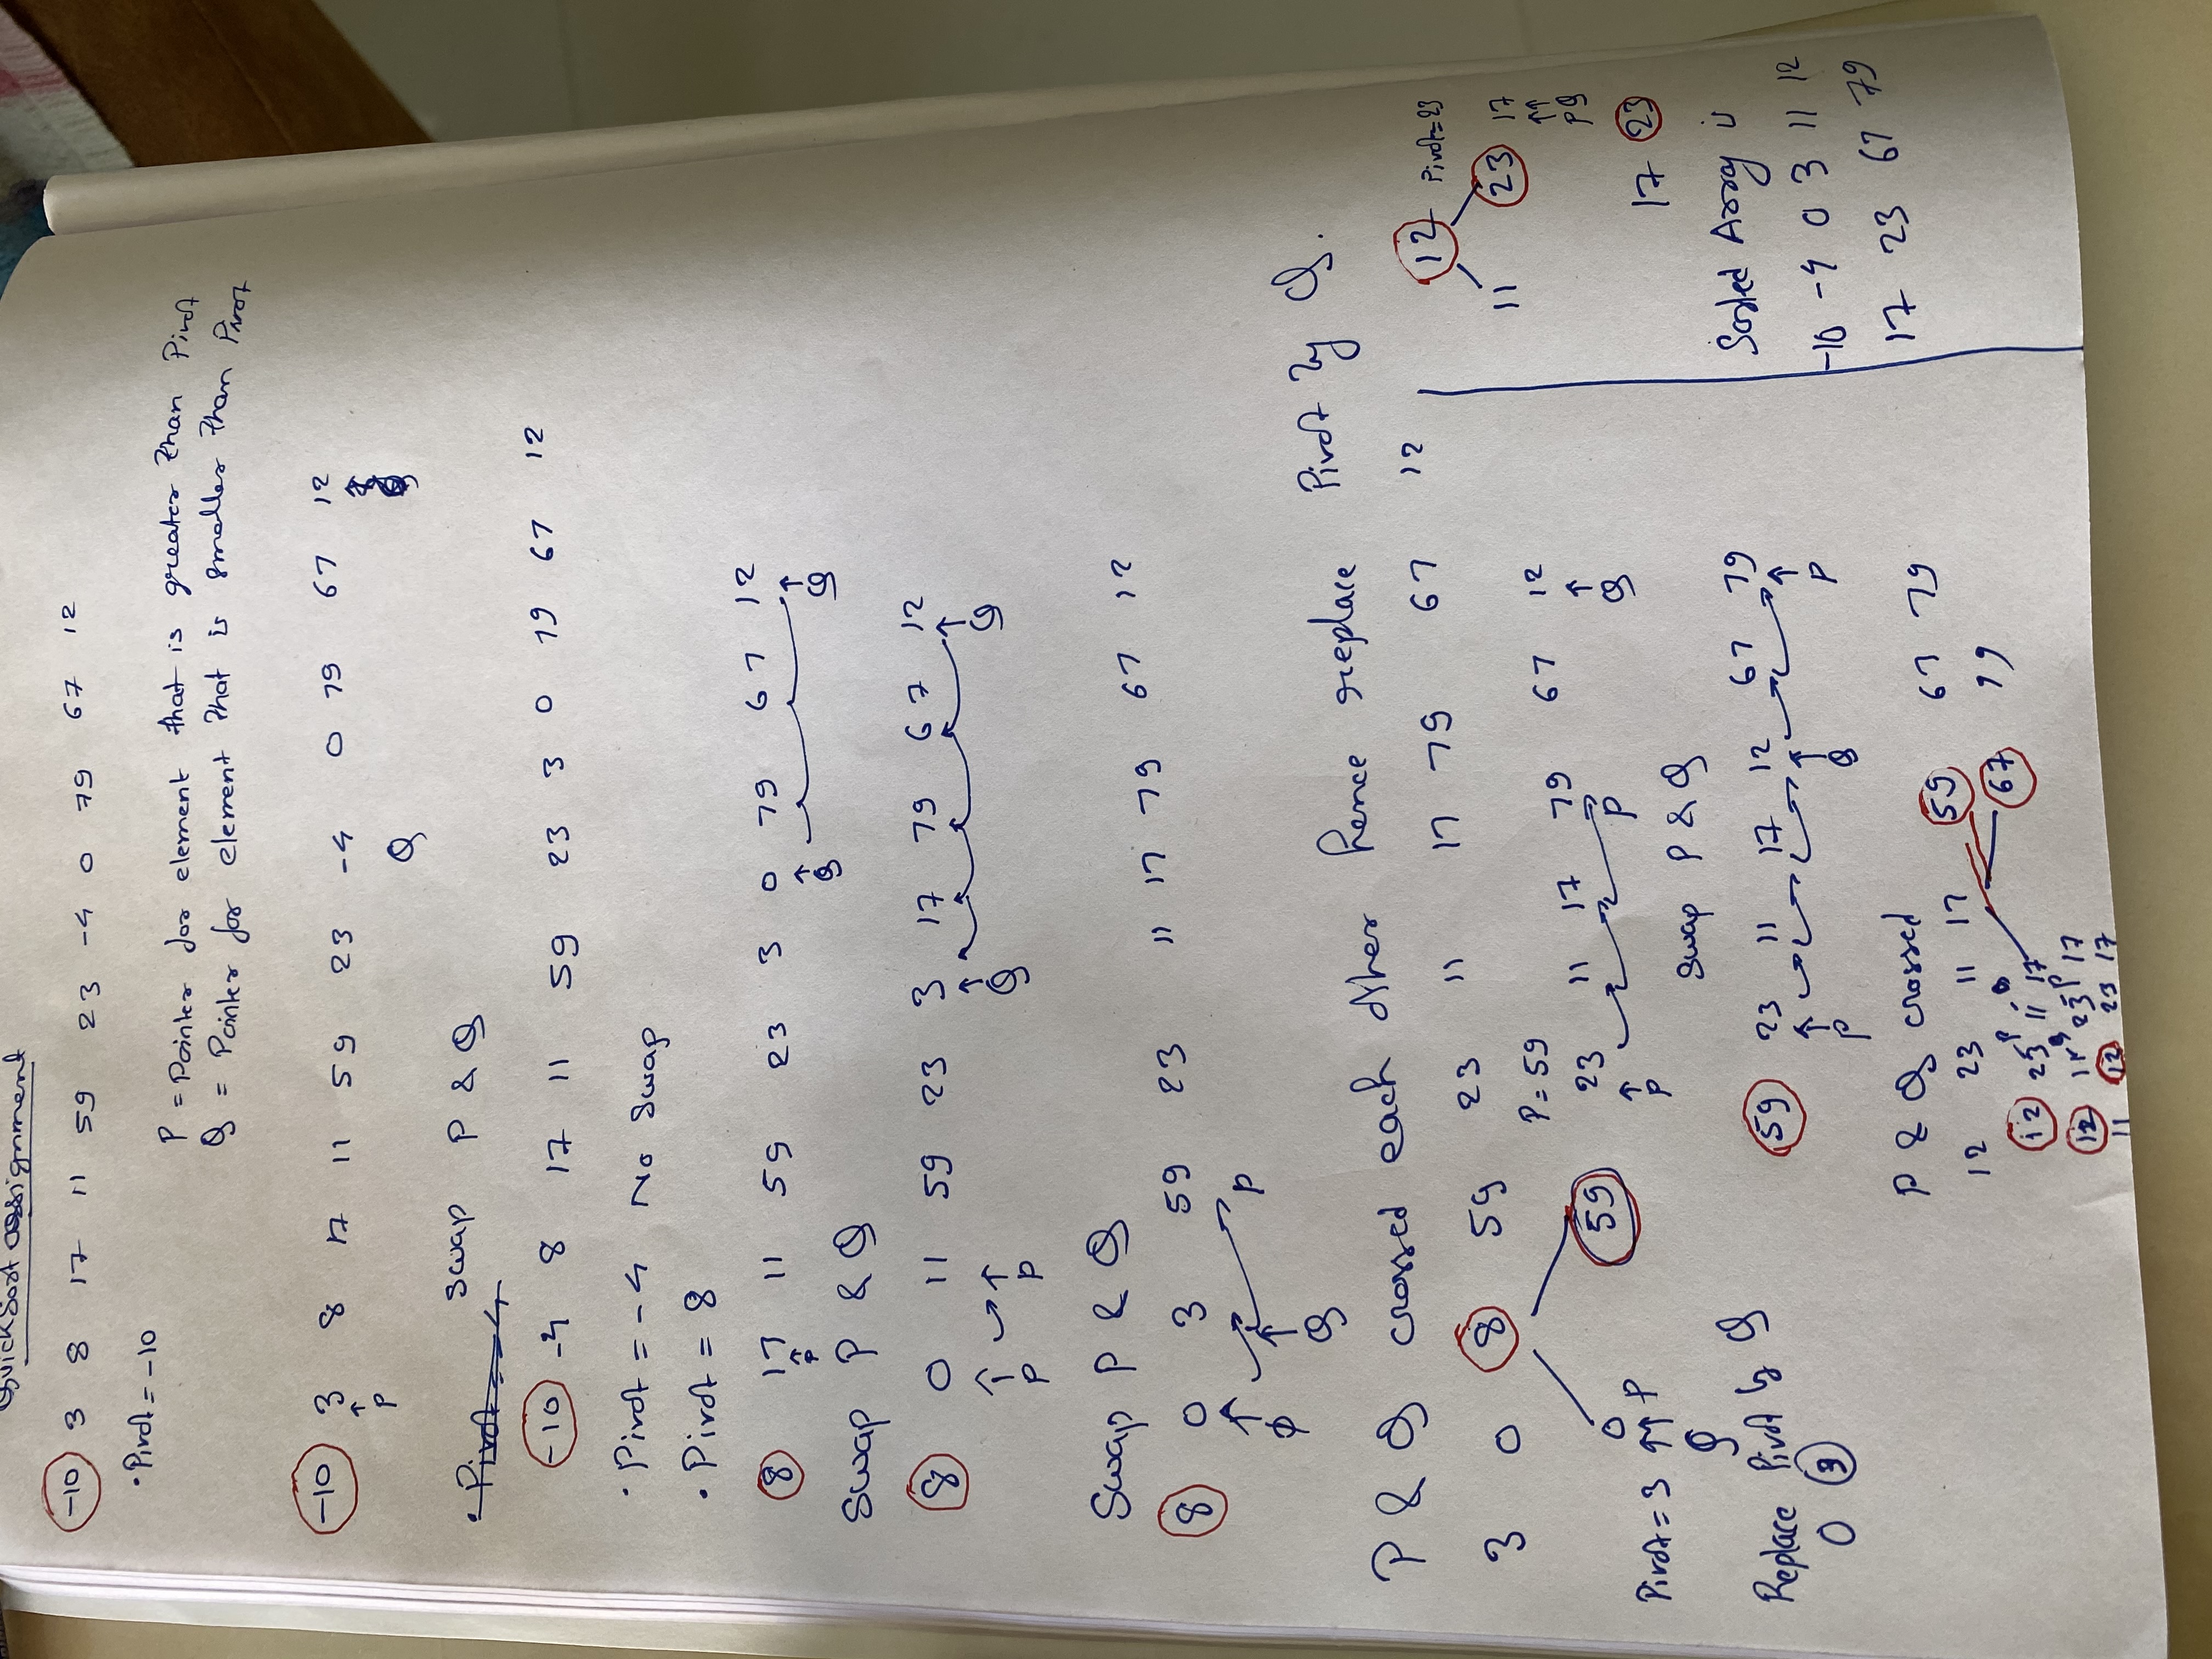 QuickSort assignment
-10 3 8 17 11 59 23 -4 0 79 67 12
• Pivot = -10
P = Pointer for element that is greater than Pivot
Q = Pointer for element that is smaller than Pivot
-10 3 8 17 11 59 23 -4 0 79 67 12
P Q
• Pivot = -4 Swap P & Q
-10 -4 8 17 11 59 23 3 0 79 67 12
• Pivot = -4 No Swap
• Pivot = 8
8 17 11 59 23 3 0 79 67 12
P Q Q
Swap P & Q
8 0 11 59 23 3 17 79 67 12
P P Q Q
Swap P & Q
8 0 3 59 23 11 17 79 67 12
P Q P
P & Q crossed each other hence replace Pivot by Q.
3 0 8 59 23 11 17 79 67 12
P = 59
0 59 23 11 17 79 67 12
Pivot = 3 P Q
P P Q
Swap P & Q
Replace Pivot by Q
0 3
59 23 11 17 12 67 79
P Q P
P & Q crossed
12 23 11 17 59 67 79
P Q
12 23 11 17 67 79
Q P
12 11 23 17
11 12 23 17
12 Pivot = 23
11 23 17
P Q
17 23
Sorted Array is
-10 -4 0 3 11 12
17 23 67 79